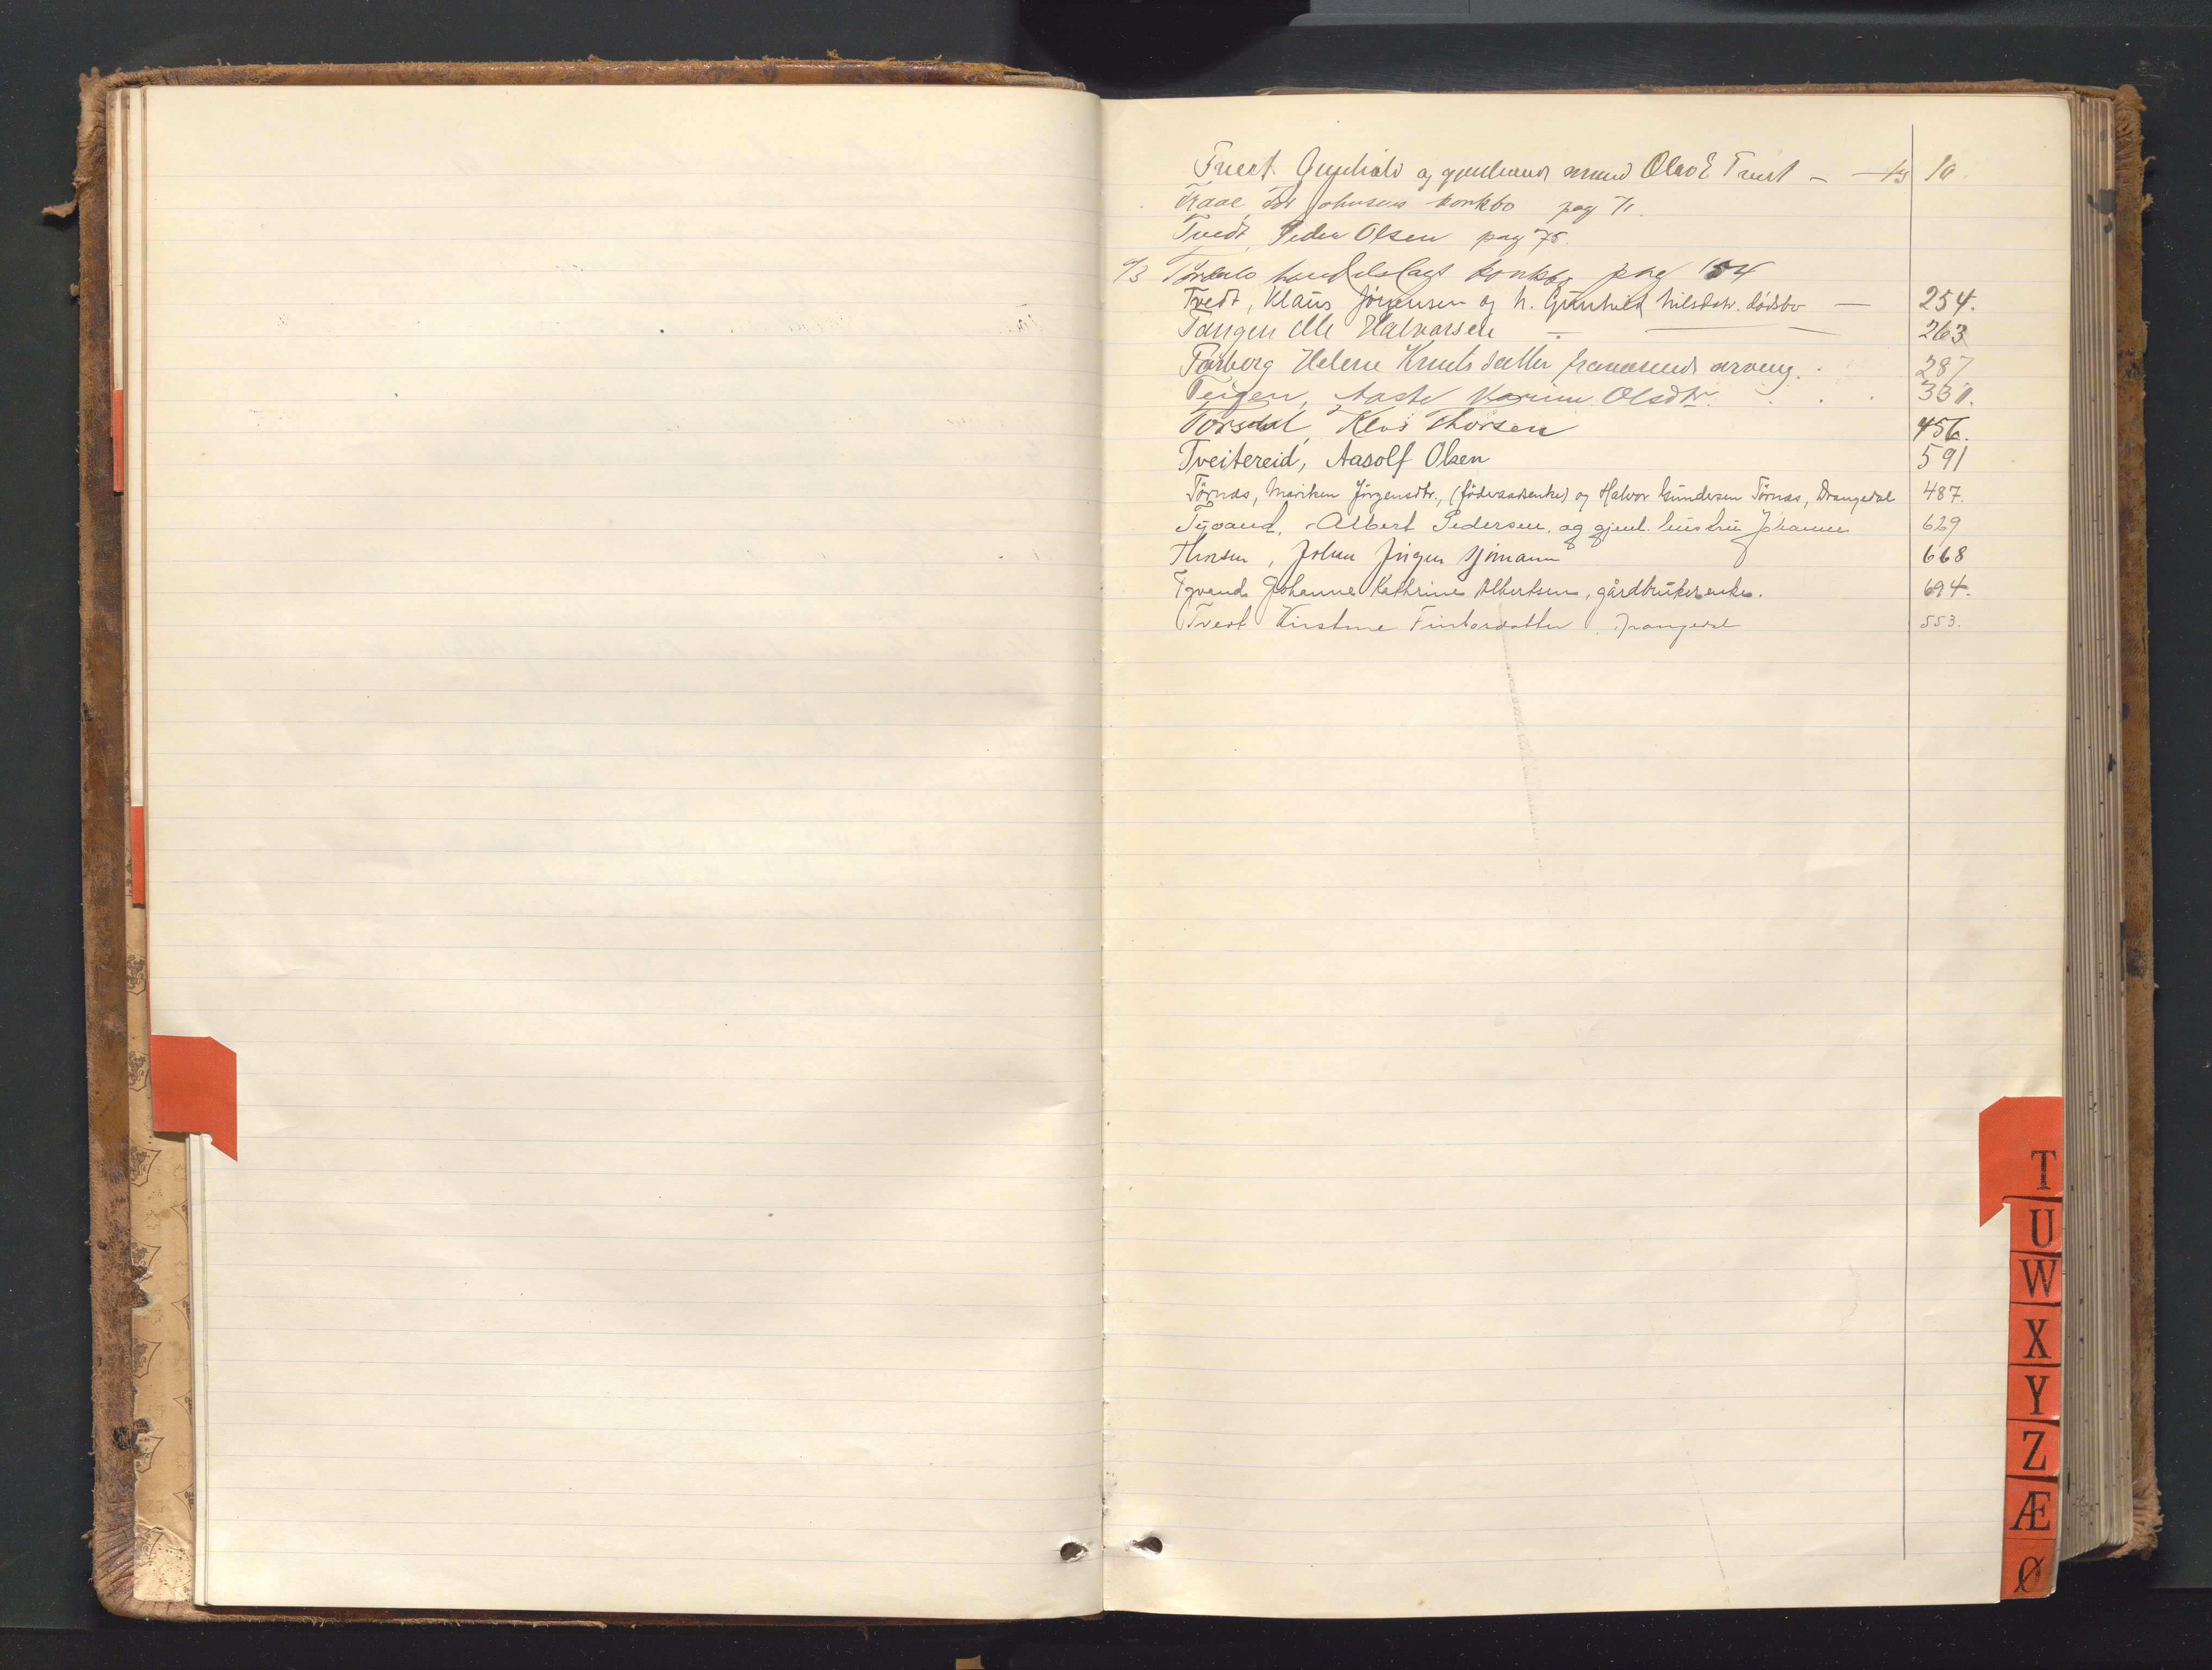 Tvedt Gunhild og gjenlevende mand Olav E Tvedt — 10.
Traae, Tor Johnsens konkbo pag 71.
Tvedt, Peder Olsen pag 75.
9/3 Tørdals handelslags konkbo pag 154
Tvedt, Klaus Jörgensen og h. Gunhild Nilsdtr. dödsbo — 254.
Tangen Ole Halvorsen — 263
Torberg Helene Knutsdatter, fraværende arving. 287
Teigen, Aaste Karine Olsdtr. 331.
Torsdal, Klas Thorsen 456.
Tveitereid, Aasolf Olsen 591
Törnes, Mariken Jörgensdtr., (föderaadsenke) og Halvor Gundersen Törnes, Drangedal 487.
Tyvand, Albert Pedersen og gjenl. hustru Johanne 629
Thorsen, Johan Jørgen sjømann 668
Tyvand Johanne Kathrine Albertsen, gårdbrukerenke. 694.
Tvedt Kirstine Finkersdatter, Drangedal 553.
T
U
W
X
Y
Z
Æ
Ø